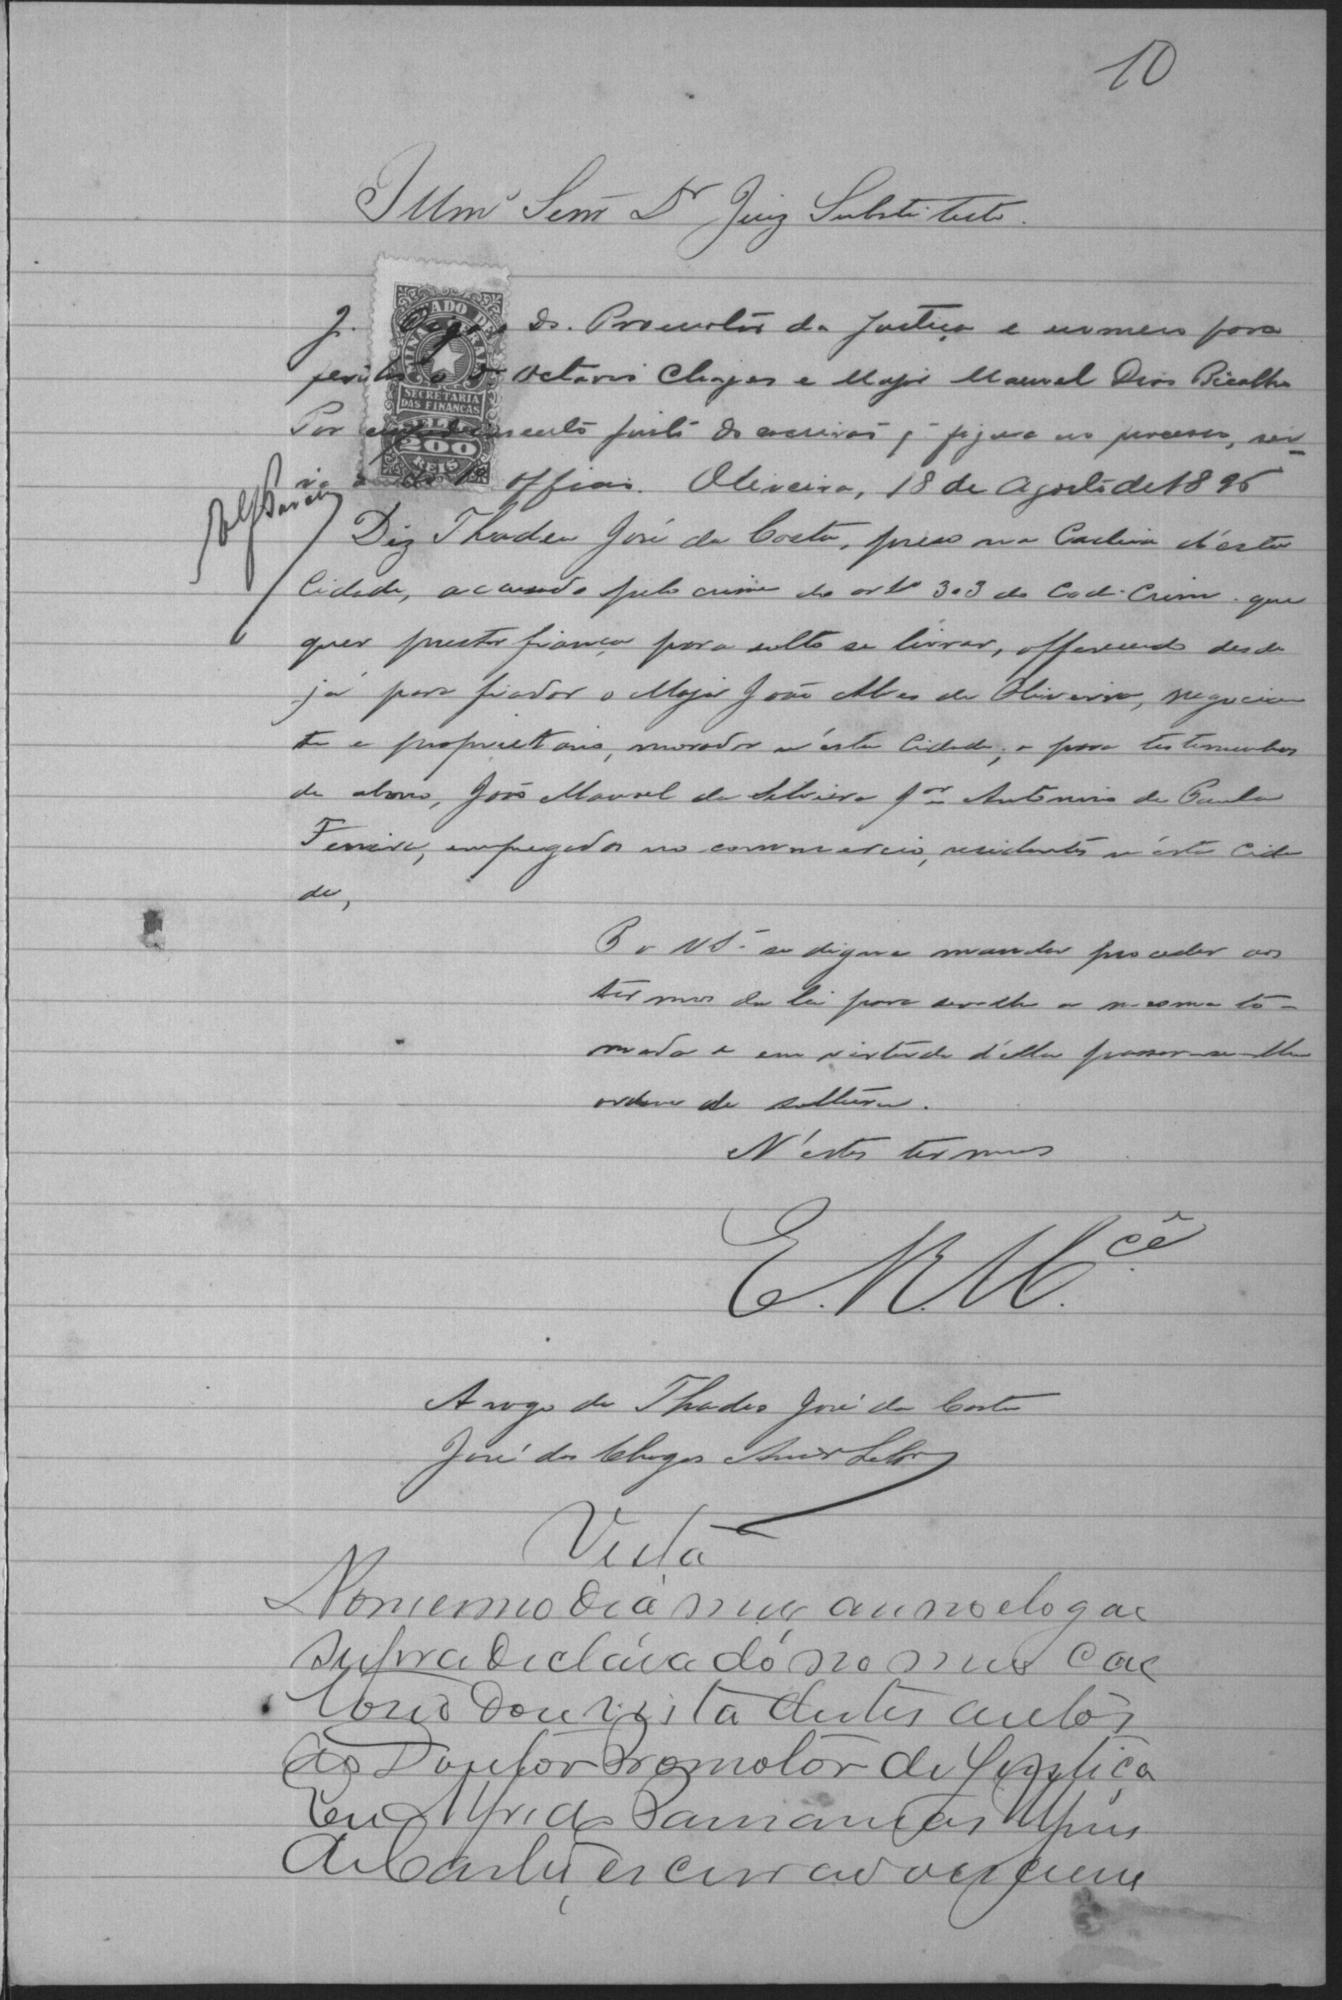 10
Illmo Senr Dr Juiz Substituto.
J. Dr. Promotor da Justiça e nomeio para
peritos o Dr Octavio Chagas e Major Manoel Dias Bicalho
Por junto do escrivão já figura no processo, ser-
o do 1º officio. Oliveira, 18 de Agosto de 1896
Diz Thadeu José da Costa, preso na Cadeia d'esta
Cidade, accusado pelo crime do artº 303 do Cod. Crim. que
quer prestar fiança para solto se livrar, offerecendo desde
já para fiador o Major João Alves de Oliveira, negocian
te e proprietario, morador n'esta Cidade, e para testemunhas
de abono, João Manoel da Silveira Jor Antonio de Paula
Ferreira, empregados no commercio, residentes n'esta Cida
de,
P. a V. S. se digne mandar proceder aos
termos da lei para ser-lhe a mesma to-
mada e em virtude d'ella passar-se-lhe
ordem de soltura.
N'estes termos
E. R. M.cê
A rogo de Thadeo José da Costa
José das Chagas
Vista
No mesmo dia mez anno e logar
supra declarado no meu car
torio dou vista destes autos
ao Doutor Promotor de Justiça
Eu
de Castro, escrivão que escrevi
ESTADO DE MINAS GERAES
SECRETARIA
DAS FINANÇAS
SELLO
200
REIS